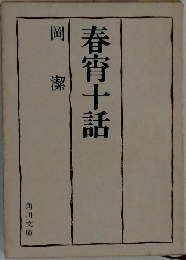 春宵十話
岡潔
角川文庫